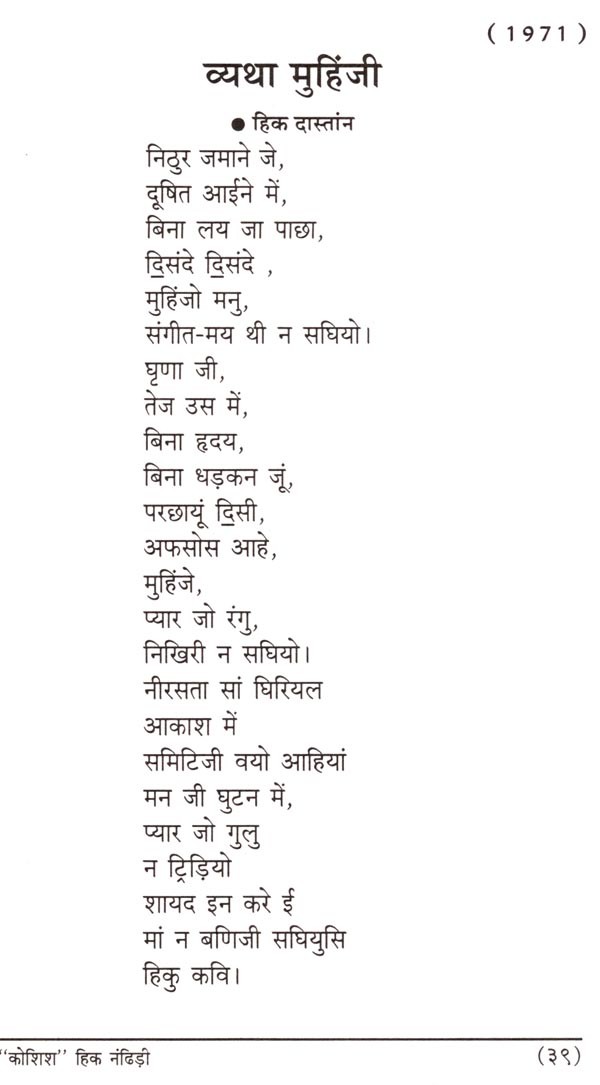 ( 1971 )
व्यथा मुहिंजी
● हिक दास्तांन
निठुर जमाने जे,
दूषित आईने में,
बिना लय जा पाछा,
दि॒संदे दि॒संदे ,
मुहिंजो मनु,
संगीत-मय थी न सघियो।
घृणा जी,
तेज उस में,
बिना हृदय,
बिना धड़कन जूं,
परछायूं दि॒सी,
अफसोस आहे,
मुहिंजे,
प्यार जो रंगु,
निखिरी न सघियो।
नीरसता सां घिरियल
आकाश में
समिटिजी वयो आहियां
मन जी घुटन में,
प्यार जो गुलु
न ट्रिड़ियो
शायद इन करे ई
मां न बणिजी सघियुसि
हिकु कवि।
"कोशिश" हिक नंढिड़ी
(३९)